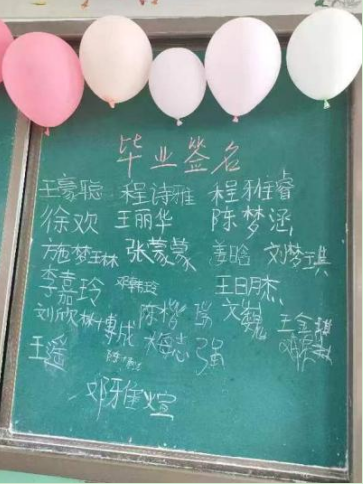 毕业签名
王豪聪 程诗雅 程雅睿
徐欢 王丽华 陈梦涵
施梦琳 张蒙蒙 姜晗 刘梦琪
李嘉玲 邓韩玲 王明杰
刘欣 林博成 陈楷 文巍 王金琪
王遥 梅志强
邓雅煊